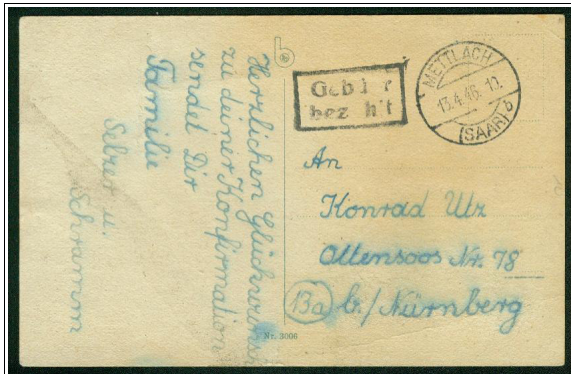 Herzlichen Glückwunsch
zu deiner Konfirmation
sendet Dir
Familie
u.
Schramm
Gebühr
bezahlt
METTLACH
13.4.46.
(SAAR) b
An
Konrad Utz
Ottensoos Nr. 78
13a b./Nürnberg
Nr. 3006